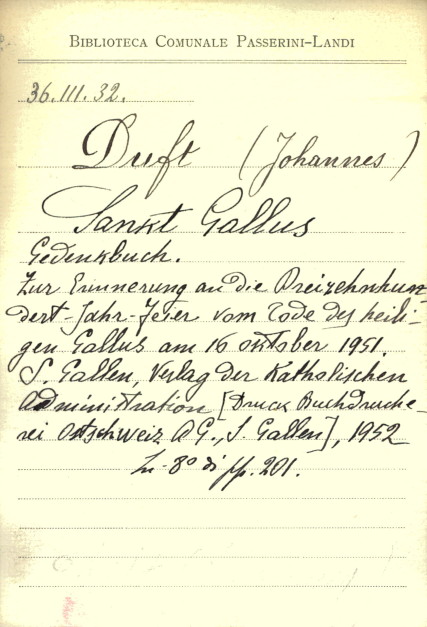 BIBLIOTECA COMUNALE PASSERINI-LANDI
36.III.32.
Duft (Johannes)
Sankt Gallus
Gedenkbuch.
Zur Erinnerung an die Dreizehnhun-
dert-Jahr-Feier vom Tode des heili-
gen Gallus am 16 oktober 1951.
S. Gallen, Verlag der Katholischen
Administration [Druck Buchdrucke-
rei Ostschweiz AG., S. Gallen], 1952
In-8° di pp. 201.